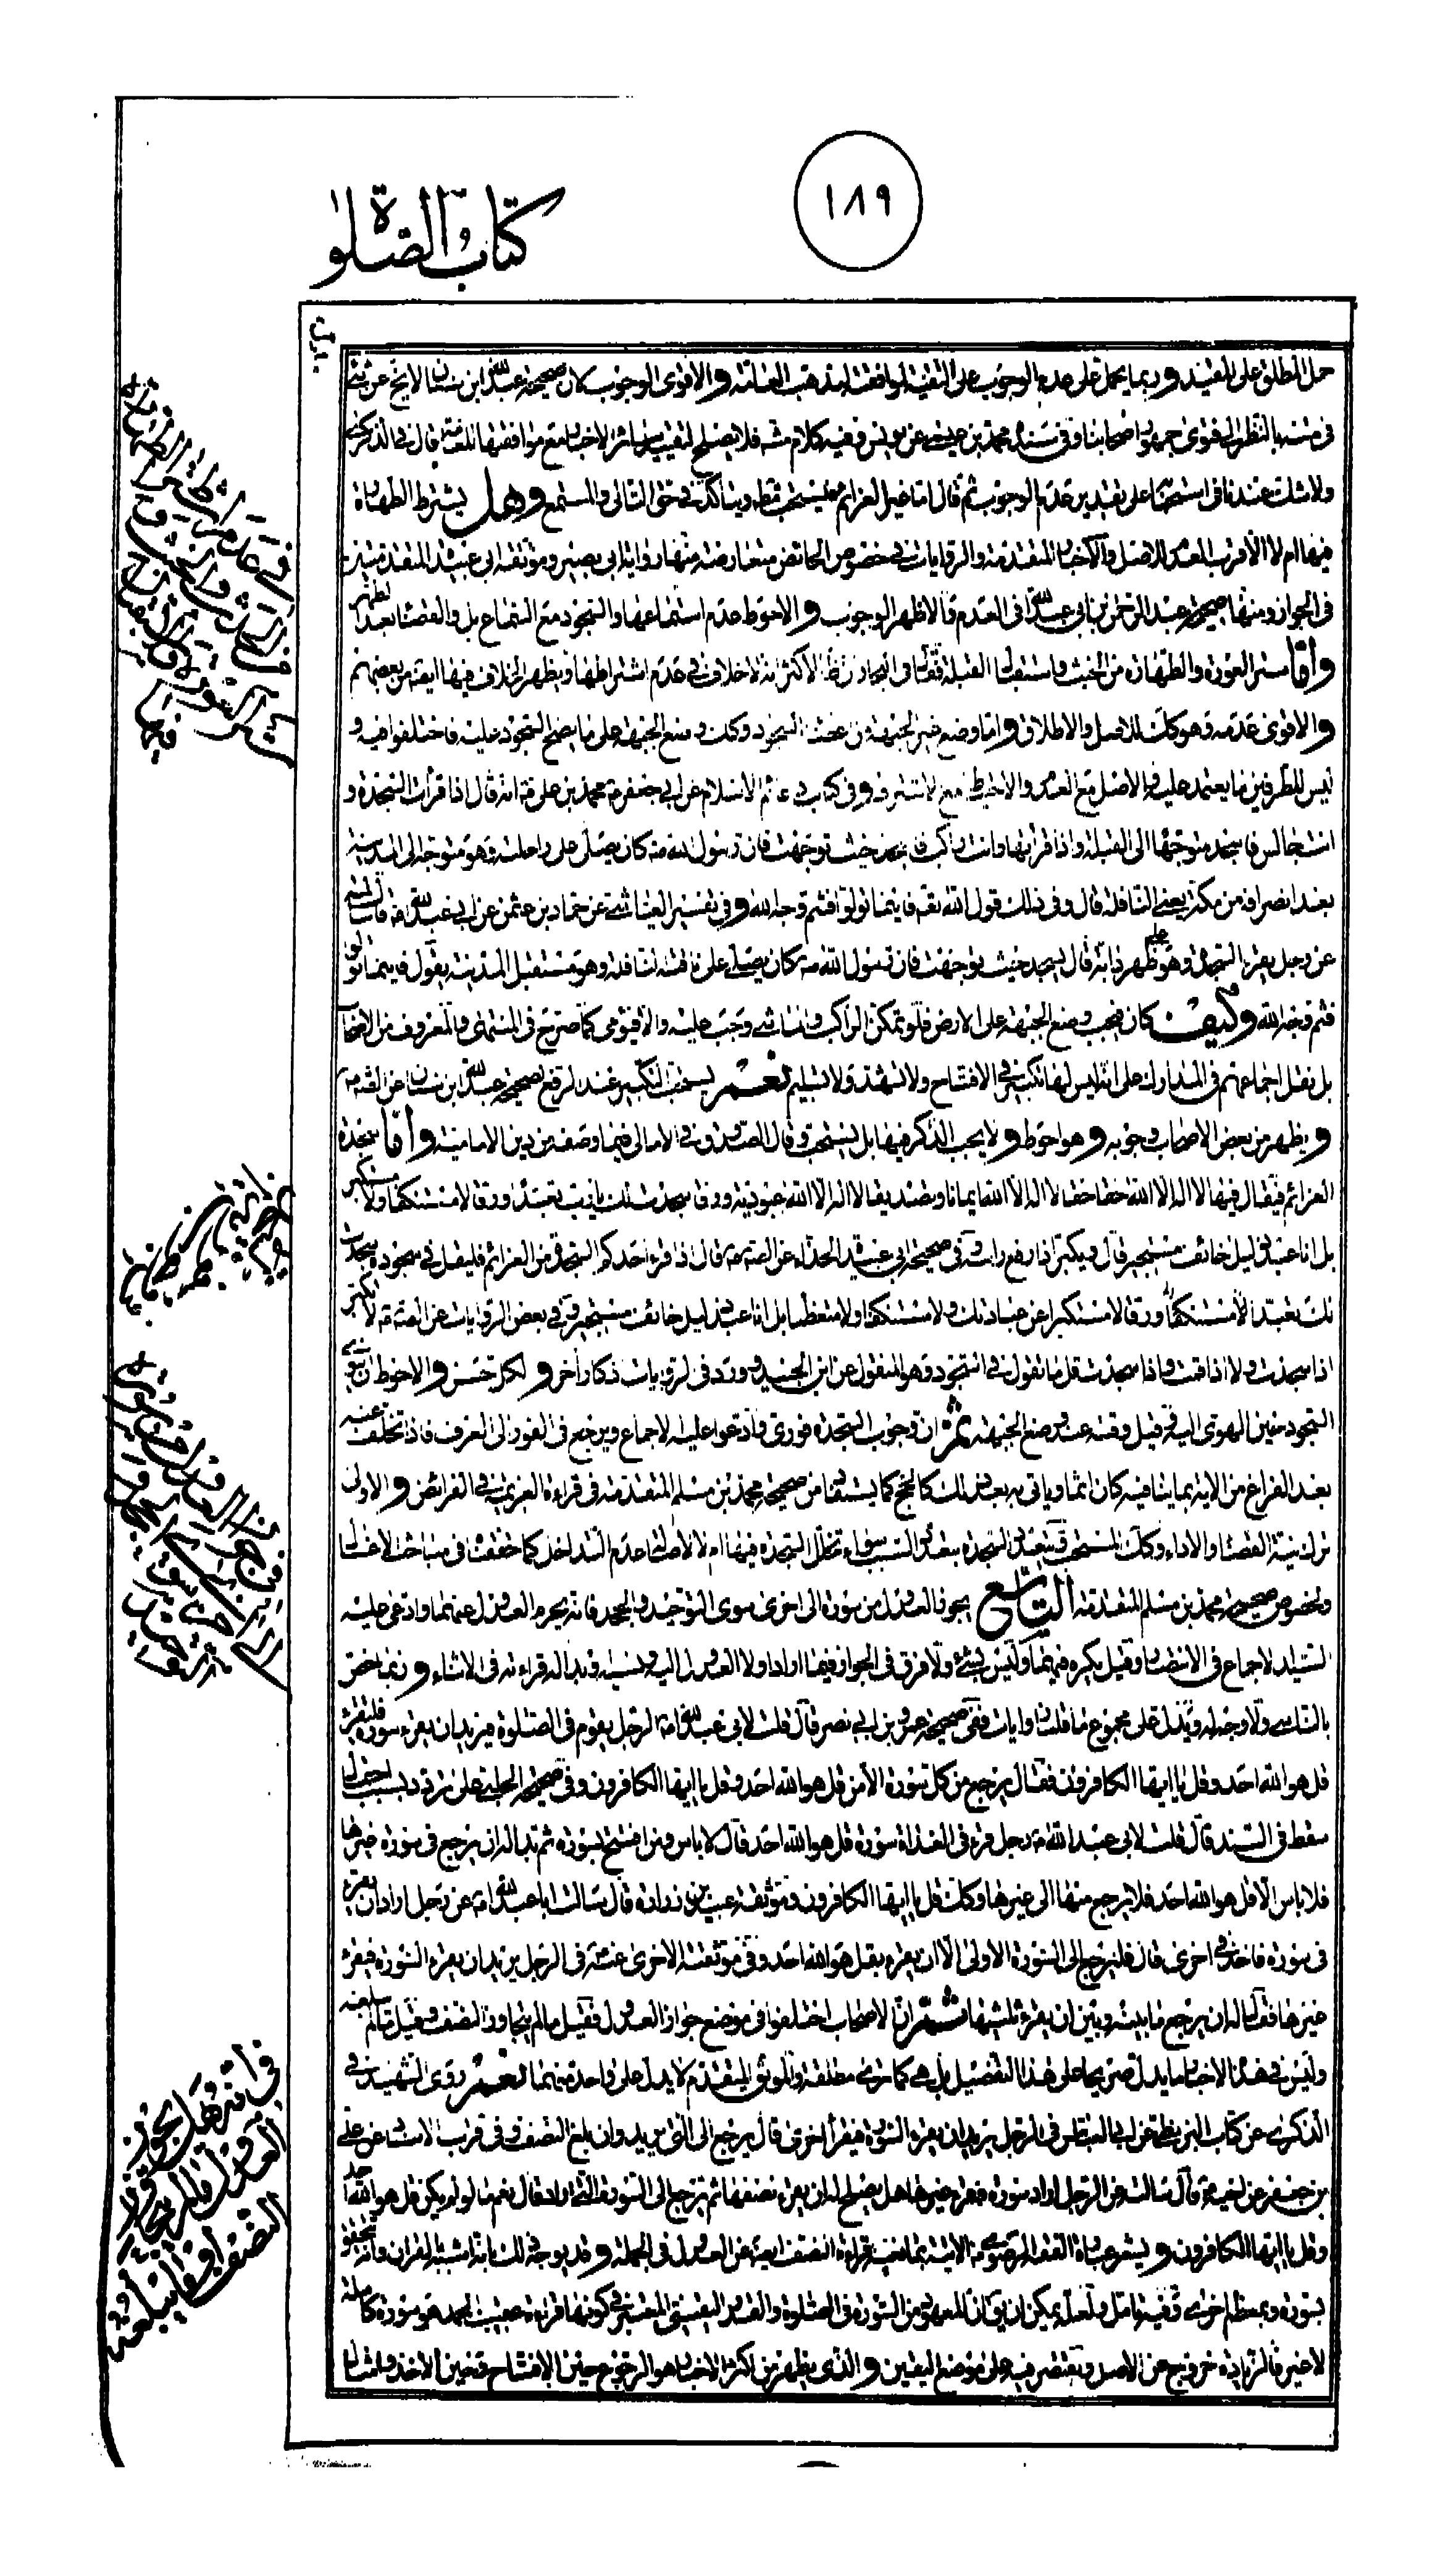 ١٨٩
كتاب الصلوٰة
حمل المطلق على المقيد و ربما يحمل على عدم الوجوب على التقية لموافقته لمذهب العامة والاقوى الوجوب كان صحيحة عبد الله ابن سنان لا يخ عن شئ
فى متنه بالنظر الى فتوى جمهور اصحابنا وفى سنده محمد بن عيسى عن يونس وفيه كلام مشهور فلا يصلح لتقييد سائر الاخبار مع موافقتها للعامة قال فى الذكرى
ولا شك عندنا فى استحبابها على تقدير عدم الوجوب ثم قال اما غير العزائم فيستحب مطلقا ويتأكد فى حق التالى والمستمع وهل يشترط الطهارة
فيها ام لا الاقرب العدم للاصل والاخبار المتقدمة والروايات فى خصوص الحائض متعارضة منها رواية ابى بصير وموثقة ابى عبيدة المتقدمتين
فى الجواز ومنها صحيحة عبد الرحمن بن ابى عبد الله فى العدم فالاظهر الوجوب والاحوط عدم استماعها والسجود مع السماع بل والقضاء بعد الطهر
واما ستر العورة والطهارة من الخبث واستقبال القبلة
والاقوى عدمه وهو كك للاصل والاطلاق واما وضع غير الجبهة من السجود وكك وضع الجبهة على ما يصح السجود عليه فاختلفوا فيه و
ليس للطرفين ما يعتمد عليه فالاصل مع العدم والاحتياط فى كتاب دعائم الاسلام عن ابى جعفر محمد بن على ع انه قال اذا قرأت السجدة و
انت جالس فاسجد متوجها الى القبلة واذا قرأتها وانت راكب فاسجد حيث توجهت فان رسول الله ص كان يصلى على راحلته وهو متوجه الى المدينة
بعد انصرافه من مكة يعنى النافلة قال وفى ذلك قول الله تعه فاينما تولوا فثم وجه الله وفى تفسير العياشى عن حماد بن عثمن عن ابى عبد الله ع قال سالته
عن رجل يقرء السجدة وهو على ظهر دابته قال يسجد حيث توجهت فان رسول الله ص كان يصلى على ناقته النافلة وهو مستقبل المدينة يقول فاينما تولوا
فثم وجه الله وكيف كان فيجب وضع الجبهة على الارض فلو تمكن الراكب والماشى وجب عليه والا فيومى كما صرح فى المنتهى والمعروف من الاصحاب
بل نقل اجماعهم فى المدارك على انه ليس لها تكبير فى الافتتاح ولا تشهد ولا تسليم نعم يستحب التكبير عند الرفع لصحيحة عبد الله ابن سنان عن الصادق ع
ويظهر من بعض الاصحاب وجوبه وهو احوط ولا يجب الذكر فيها بل يستحب وقال الصدوق فى الامالى فيما وصفه من دين الامامية واما سجدة
العزائم فيقال فيها لا اله الا الله حقا حقا لا اله الا الله ايمانا وتصديقا لا اله الا الله عبودية ورقا سجدت لك يا رب تعبدا ورقا لا مستنكفا ولا مستكبرا
بل انا عبد ذليل خائف مستجير قال ويكبر اذا رفع راسه وفى صحيحة ابى عبيدة الحذاء عن الصادق ع قال اذا قرء احدكم السجدة من العزائم فليقل فى سجوده سجدت
لك تعبدا ورقا لا مستكبرا عن عبادتك ولا مستنكفا ولا متعظما بل انا عبد ذليل خائف مستجير وفى بعض الروايات عن الصادق ع لا تكبر
اذا سجدت ولا اذا قمت واذا سجدت قل ما تقول فى السجود وهو المنقول عن ابن الجنيد وورد فى الروايات ذكار أخر ولكل حسن والاحوط ان ينوى
السجود حين الهوى اليه وقيل وقته عند وضع الجبهة ثم ان وجوب السجدة فورى وادعوا عليه الاجماع ويرجع فى الفور الى العرف فاذا تخلف عنه
بعد الفراغ من الاية بما ينافيه كان اثما وياتى به بعد ذلك كالحج كما يستفاد من صحيحة محمد بن مسلم المتقدمة فى قراءة العزيمة فى الفرائض والاولى
ترك نية القضاء والاداء وكك المستحب وتتعدد السجدة بتعدد السبب سواء تخلل السجدة فيها ام لا لاصالة عدم التداخل كما حققت فى مباحث الاغسال
ولخصوص صحيحة محمد بن مسلم المتقدمة التاسع يجوز العدول من سورة الى اخرى سوى التوحيد والجحد فانه يحرم العدول عنهما وادعى عليه
السيد الاجماع فى الانتصار وقيل يكره فيهما وليس بشئ ولا فرق فى الجواز فيما اراد اولا العدول اليه وبدا له قراءته فى الاثناء وربما خص
بالناسى ولا وجه له ويدل على مجموع ما قلنا روايات ففى صحيحة عمرو بن ابى نصر قال قلت لابى عبد الله ع الرجل يقوم فى الصلوة فيريد ان يقرء سورة فيقرء
قل هو الله احد وقل يا ايها الكافرون فقال يرجع من كل سورة الا من قل هو الله احد وقل يا ايها الكافرون وفى صحيحة الحلبى على تردد بسبب احتمال
سقط فى السند قال قلت لابى عبد الله ع رجل قرء فى الغداة سورة قل هو الله احد قال لا باس ومن افتتح بسورة ثم بدا له ان يرجع فى سورة غيرها
فلا باس الا قل هو الله احد فلا يرجع منها الى غيرها وكك قل يا ايها الكافرون وموثقة عبيد بن زرارة قال سالت ابا عبد الله ع عن رجل اراد ان يقرء
فى سورة فاخذ فى اخرى قال فليرجع الى السورة الاولى الا ان يقرء بقل هو الله احد وفى موثقته الاخرى عنه ع فى الرجل يريد ان يقرء السورة فيقرء
غيرها فقال له ان يرجع ما بينه وبين ان يقرء ثلثيها ثم ان الاصحاب اختلفوا فى موضع جواز العدول فقيل ما لم يتجاوز النصف وقيل ما لم يبلغه
وليس فى هذه الاخبار ما يدل صريحا على هذا التفصيل بل هى كما ترى مطلقة والموثق المتقدم لا يدل على واحد منهما نعم روى الشهيد فى
الذكرى عن كتاب البزنطى عن ابى العباس فى الرجل يريد ان يقرء السورة فيقرأ اخرى قال يرجع الى التى يريد وان بلغ النصف وفى قرب الاسناد عن على
بن جعفر عن اخيه ع قال سالته عن الرجل اراد سورة فقرء غيرها هل يصلح له ان يقرء نصفها ثم يرجع الى السورة التى اراد قال نعم ما لم يكن قل هو الله احد
وقل يا ايها الكافرون ويشعر عبارة الفقه الرضوى
بسورة وبمعظم اخرى وفيه تامل ولعله يمكن ان يق ان المعهود من السورة فى الصلوة والقدر اليقينى المعتبر فى كونها قراءة عقيب الحمد هو سورة كاملة
لا غير فالزيادة خروج عن الاصل ويقتصر فيه على موضع اليقين والذى يظهر من اكثر الاخبار هو الرجوع حين الافتتاح وحين الاخذ وامثال
فى انه هل يجوز
العدول ما لم يتجاوز
النصف او ما لم يبلغه